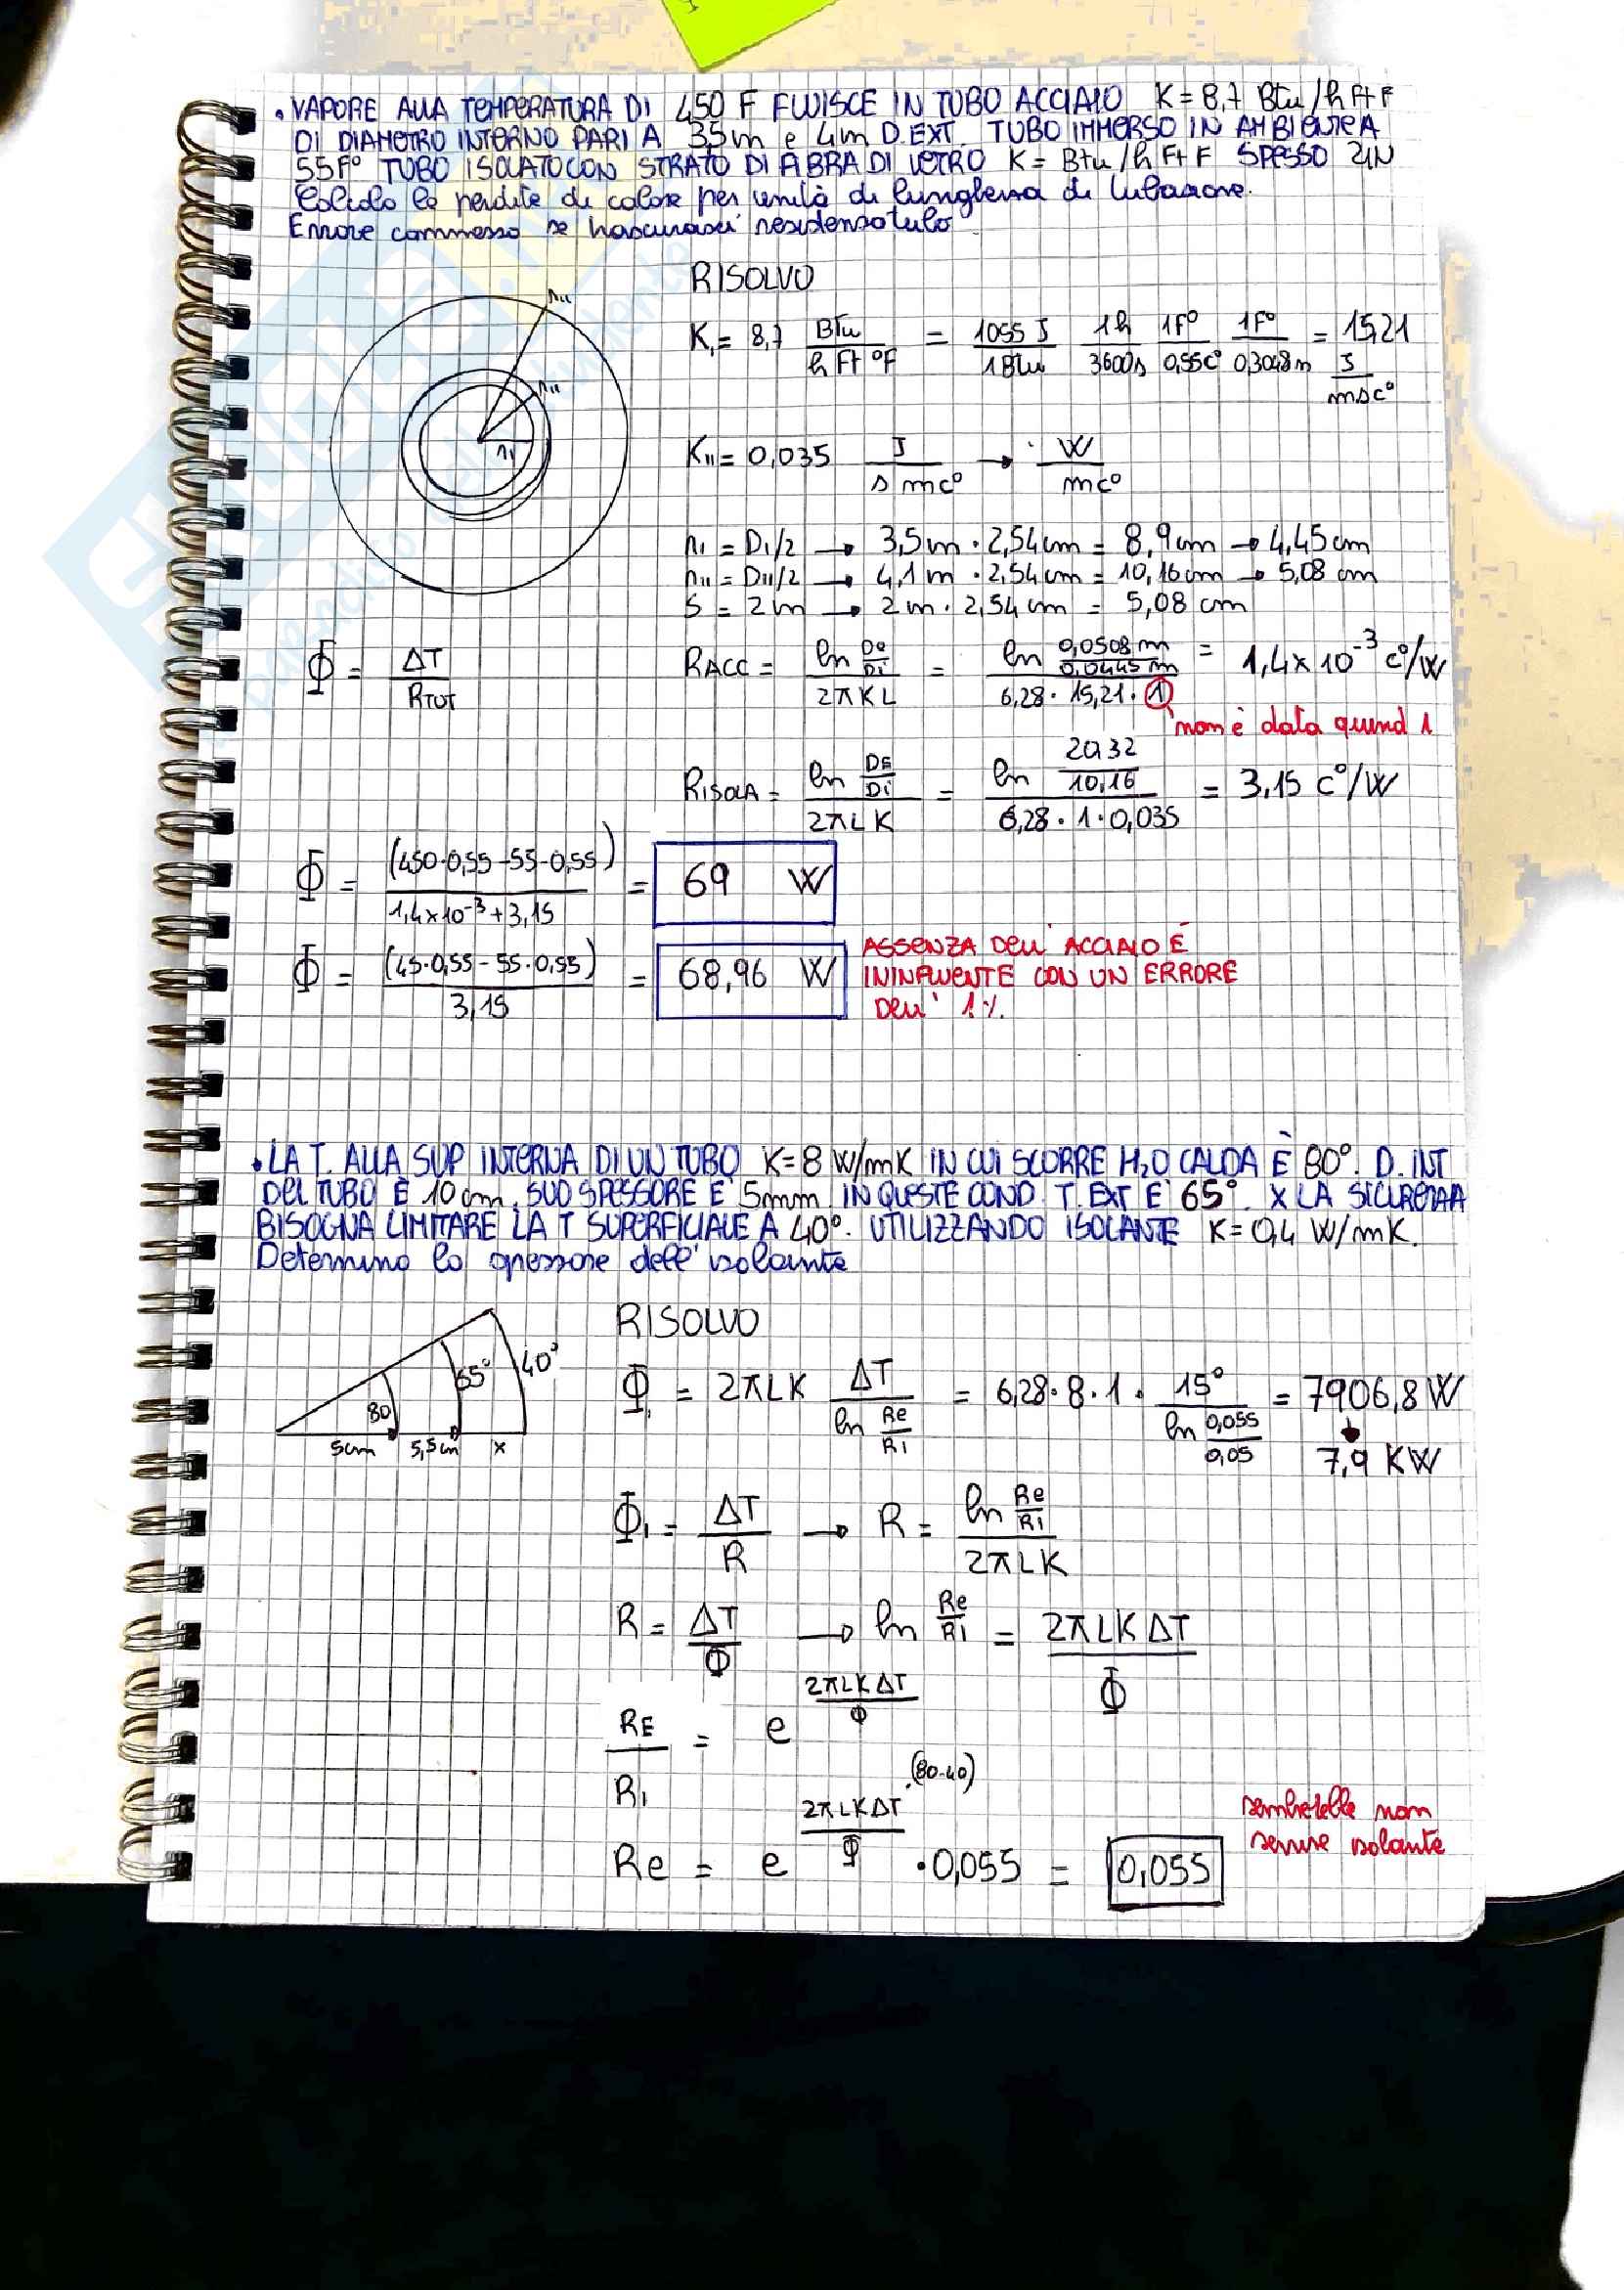 • VAPORE ALLA TEMPERATURA DI 450 F FLUISCE IN TUBO ACCIAIO K = 8,7 Btu/h Ft F
DI DIAMETRO INTERNO PARI A 3,5 m e 4 m D.EXT. TUBO IMMERSO IN AMBIENTE A
55F° TUBO ISOLATO CON STRATO DI FIBRA DI VETRO K = Btu/h Ft F SPESSO 2IN
Calcolo le perdite di calore per unità di lunghezza di tubazione.
Errore commesso se trascurassi resistenza tubo
RISOLVO
K₁ = 8,7 Btu / h Ft °F = 1055 J / 1 Btu 1h / 3600s 1F° / 0,55C° 1F° / 0,3048m = 15,21 J / m s c°
K₁₁ = 0,035 J / s m c° → W / m c°
r₁ = D₁/2 → 3,5 m · 2,54 cm = 8,9 cm → 4,45 cm
r₁₁ = D₁₁/2 → 4,1 m · 2,54 cm = 10,16 cm → 5,08 cm
S = 2 m → 2 m · 2,54 cm = 5,08 cm
Φ = ΔT / RTOT
RACC = ln De/Di / 2πKL = ln 0,0508 m / 0,0445 m / 6,28 · 15,21 · 1 = 1,4 × 10⁻³ c°/W
non è data quind 1
RISOLA = ln DE/Di / 2πLK = ln 20,32 / 10,16 / 6,28 · 1 · 0,035 = 3,15 c°/W
Φ = (450·0,55 - 55·0,55) / 1,4×10⁻³ + 3,15 = 69 W
Φ = (45·0,55 - 55·0,55) / 3,15 = 68,96 W
ASSENZA DELL' ACCIAIO È
ININFLUENTE CON UN ERRORE
DELL' 1%.
• LA T. ALLA SUP INTERNA DI UN TUBO K = 8 W/mK IN CUI SCORRE H₂O CALDA È 80°. D. INT
DEL TUBO È 10 cm, SUO SPESSORE E' 5mm, IN QUESTE COND. T. EXT E' 65°. X LA SICUREZZA
BISOGNA LIMITARE LA T SUPERFICIALE A 40°. UTILIZZANDO ISOLANTE K = 0,4 W/mK.
Determino lo spessore dell' isolante
RISOLVO
80 65° 40°
5cm 5,5cm x
Φ₁ = 2πLK ΔT / ln Re/R₁ = 6,28 · 8 · 1 · 15° / ln 0,055/0,05 = 7906,8 W
7,9 KW
Φ₁ = ΔT / R → R = ln Re/R₁ / 2πLK
R = ΔT / Φ → ln Re/R₁ = 2πLKΔT / Φ
RE / R₁ = e 2πLKΔT / Φ
(80-40)
Re = e 2πLKΔT / Φ · 0,055 = 0,055
sembrerebbe non
servire isolante